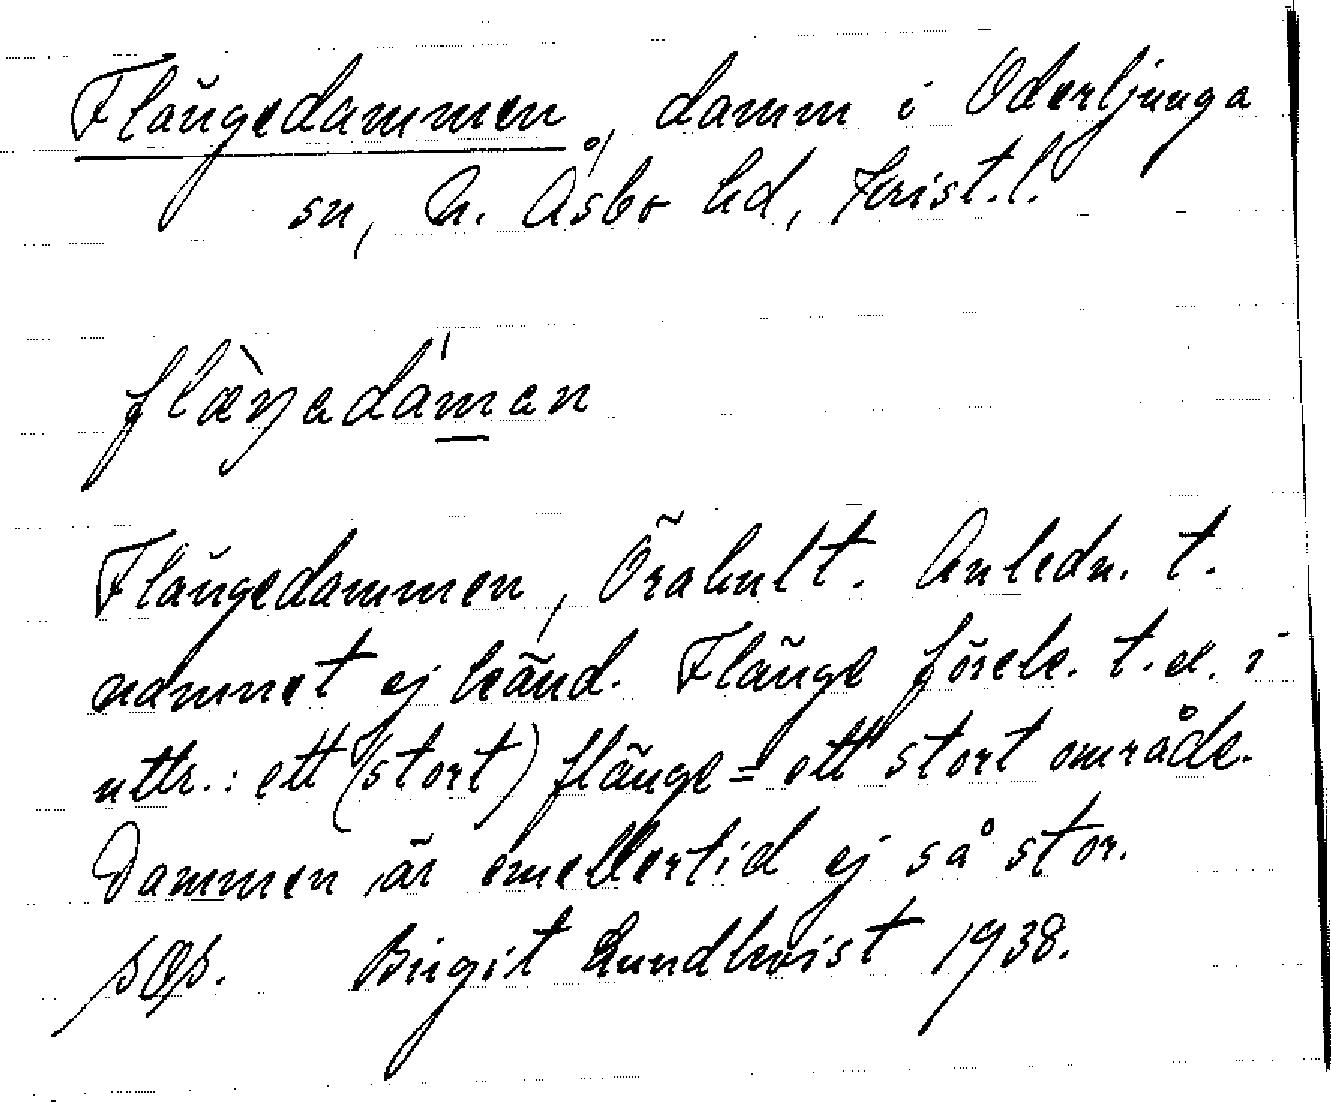 Flängedammen, damm i Oderljunga
sn, N. Åsbo hd, Krist.l.
flæŋedamen
Flängedammen, Örahult. Anledn. t.
namnet ej känd. Flänge förek. t.ex. i
uttr.: ett (stort) flänge = ett stort område.
Dammen är emellertid ej så stor.
Birgit Lundkvist 1938.